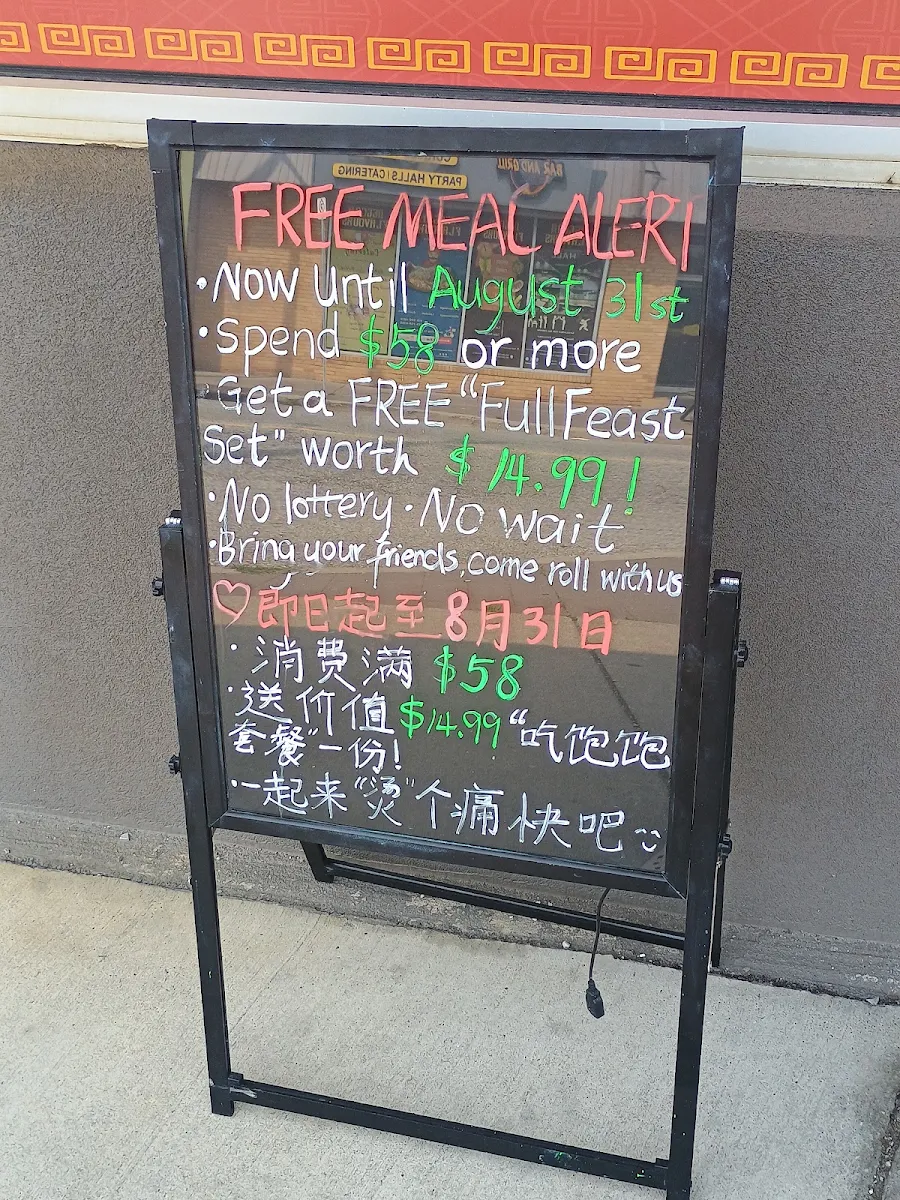 FREE MEAL ALERT
•Now Until August 31st
•Spend $58 or more
Get a FREE "Full Feast
Set" worth $14.99!
•No lottery •No wait
•Bring your friends, come roll with us
♡即日起至8月31日
•消费满 $58
•送价值$14.99"吃饱饱
套餐"一份!
•一起来"烫"个痛快吧
PARTY HALLS | CATERING
BAR AND GRILL